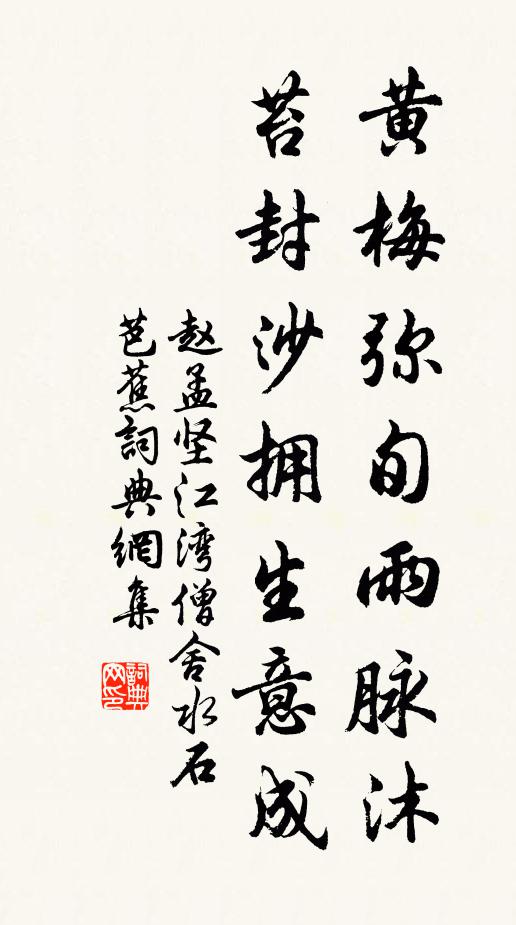 黄梅弥旬雨脉沐
苔封沙拥生意成
赵孟坚江湾僧舍水石
芭蕉詞典網集
詞典网印